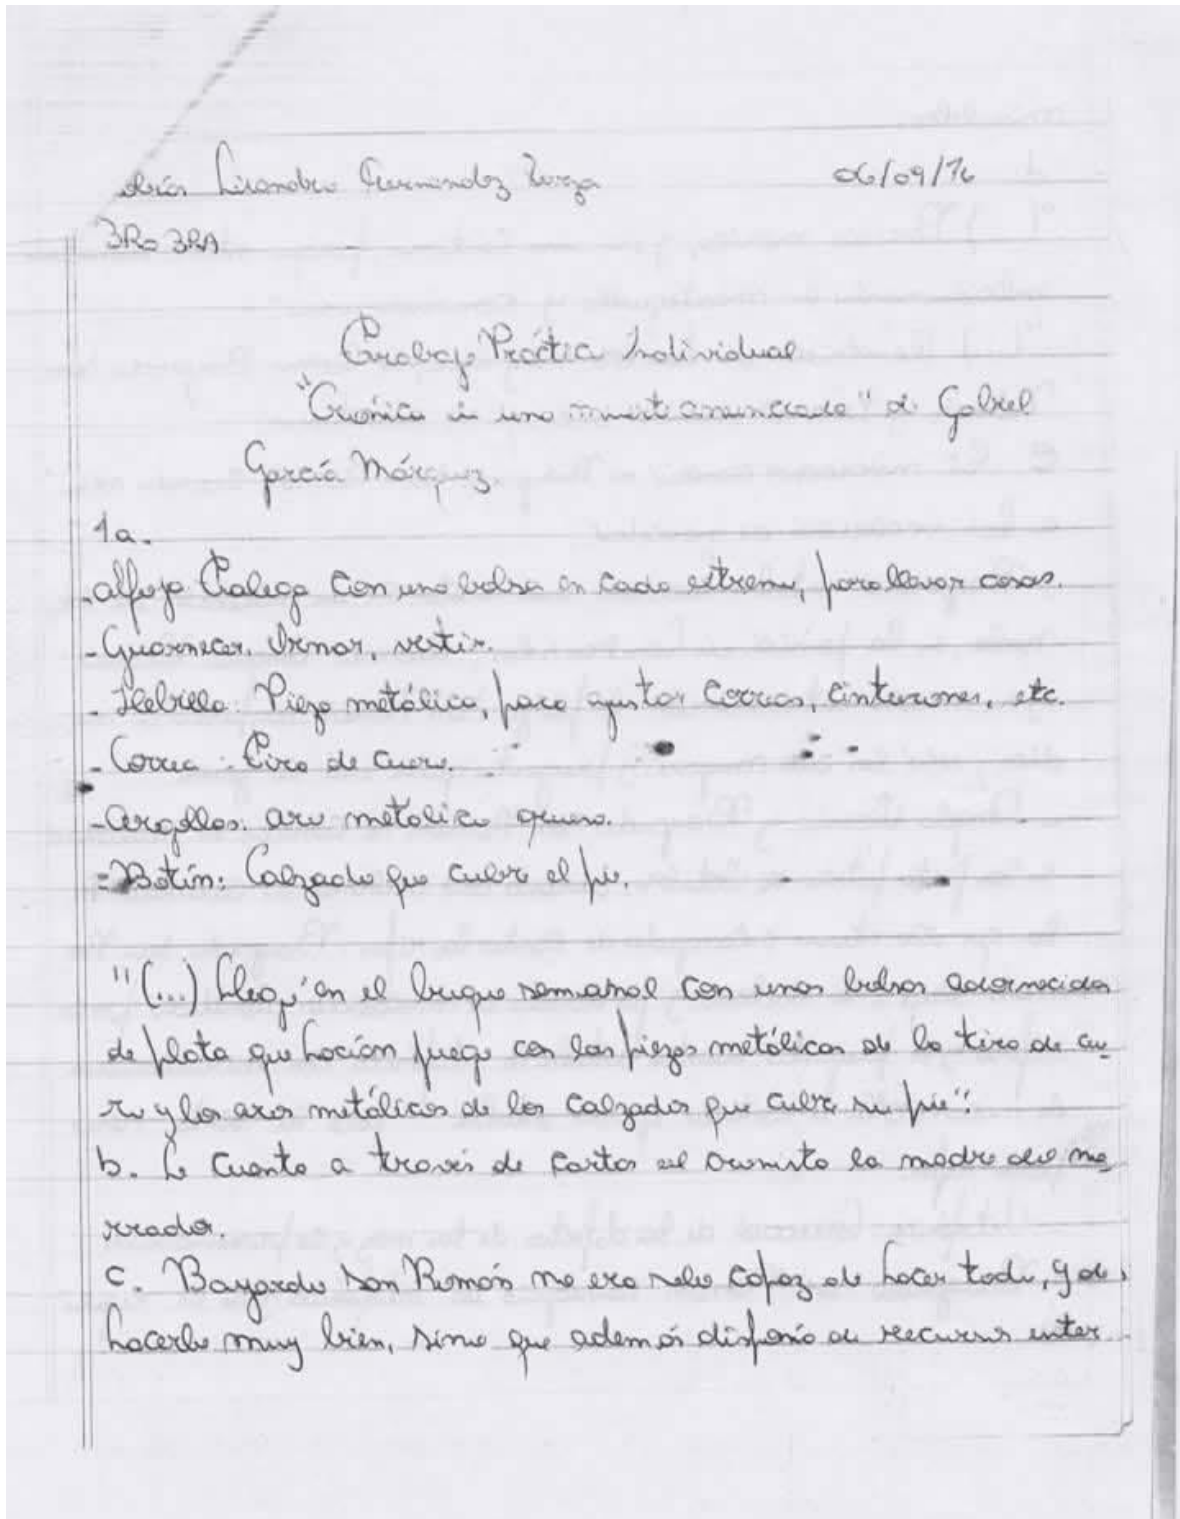 Lisandro 06/09/16
3Ro 3RA
Trabajo Práctico Individual
"Crónica de una muerte anunciada" de Gabriel
García Márquez.
1a.
-alforja Talega con una bolsa en cada extremo, para llevar cosas.
-Guarnecer. Ornar, vestir.
- Hebilla: Pieza metálica, para ajustar correas, cinturones, etc.
- Correa: Tira de cuero.
-Argollas: aro metalico grueso.
-Botín: Calzado que cubre el pie.
"(...) Llegó en el buque semanal con unas bolsas adornecidas
de plata que hacían juego con las piezas metálicas de la tira de cue
ro y los aros metálicos de los calzados que cubre su pie".
b. Le cuenta a través de cartas la madre del na
rrador.
C. Bayardo San Román no era solo capaz de hacer todo, y de
hacerlo muy bien, sino que además disponía de recursos inter